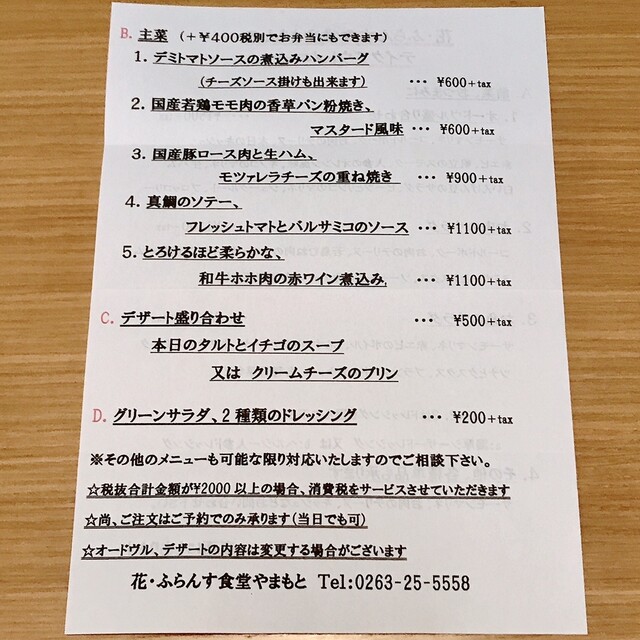 B. 主菜 （＋￥400税別でお弁当にもできます）
1. デミトマトソースの煮込みハンバーグ
（チーズソース掛けも出来ます） … ¥600＋tax
2. 国産若鶏モモ肉の香草パン粉焼き、
マスタード風味 … ¥600＋tax
3. 国産豚ロース肉と生ハム、
モツァレラチーズの重ね焼き … ¥900＋tax
4. 真鯛のソテー、
フレッシュトマトとバルサミコのソース … ¥1100＋tax
5. とろけるほど柔らかな、
和牛ホホ肉の赤ワイン煮込み … ¥1100＋tax
C. デザート盛り合わせ … ¥500＋tax
本日のタルトとイチゴのスープ
又は クリームチーズのプリン
D. グリーンサラダ、2種類のドレッシング … ¥200＋tax
※その他のメニューも可能な限り対応いたしますのでご相談下さい。
☆税抜合計金額が¥2000以上の場合、消費税をサービスさせていただきます
☆尚、ご注文はご予約でのみ承ります（当日でも可）
☆オードヴル、デザートの内容は変更する場合がございます
花・ふらんす食堂やまもと Tel:0263-25-5558